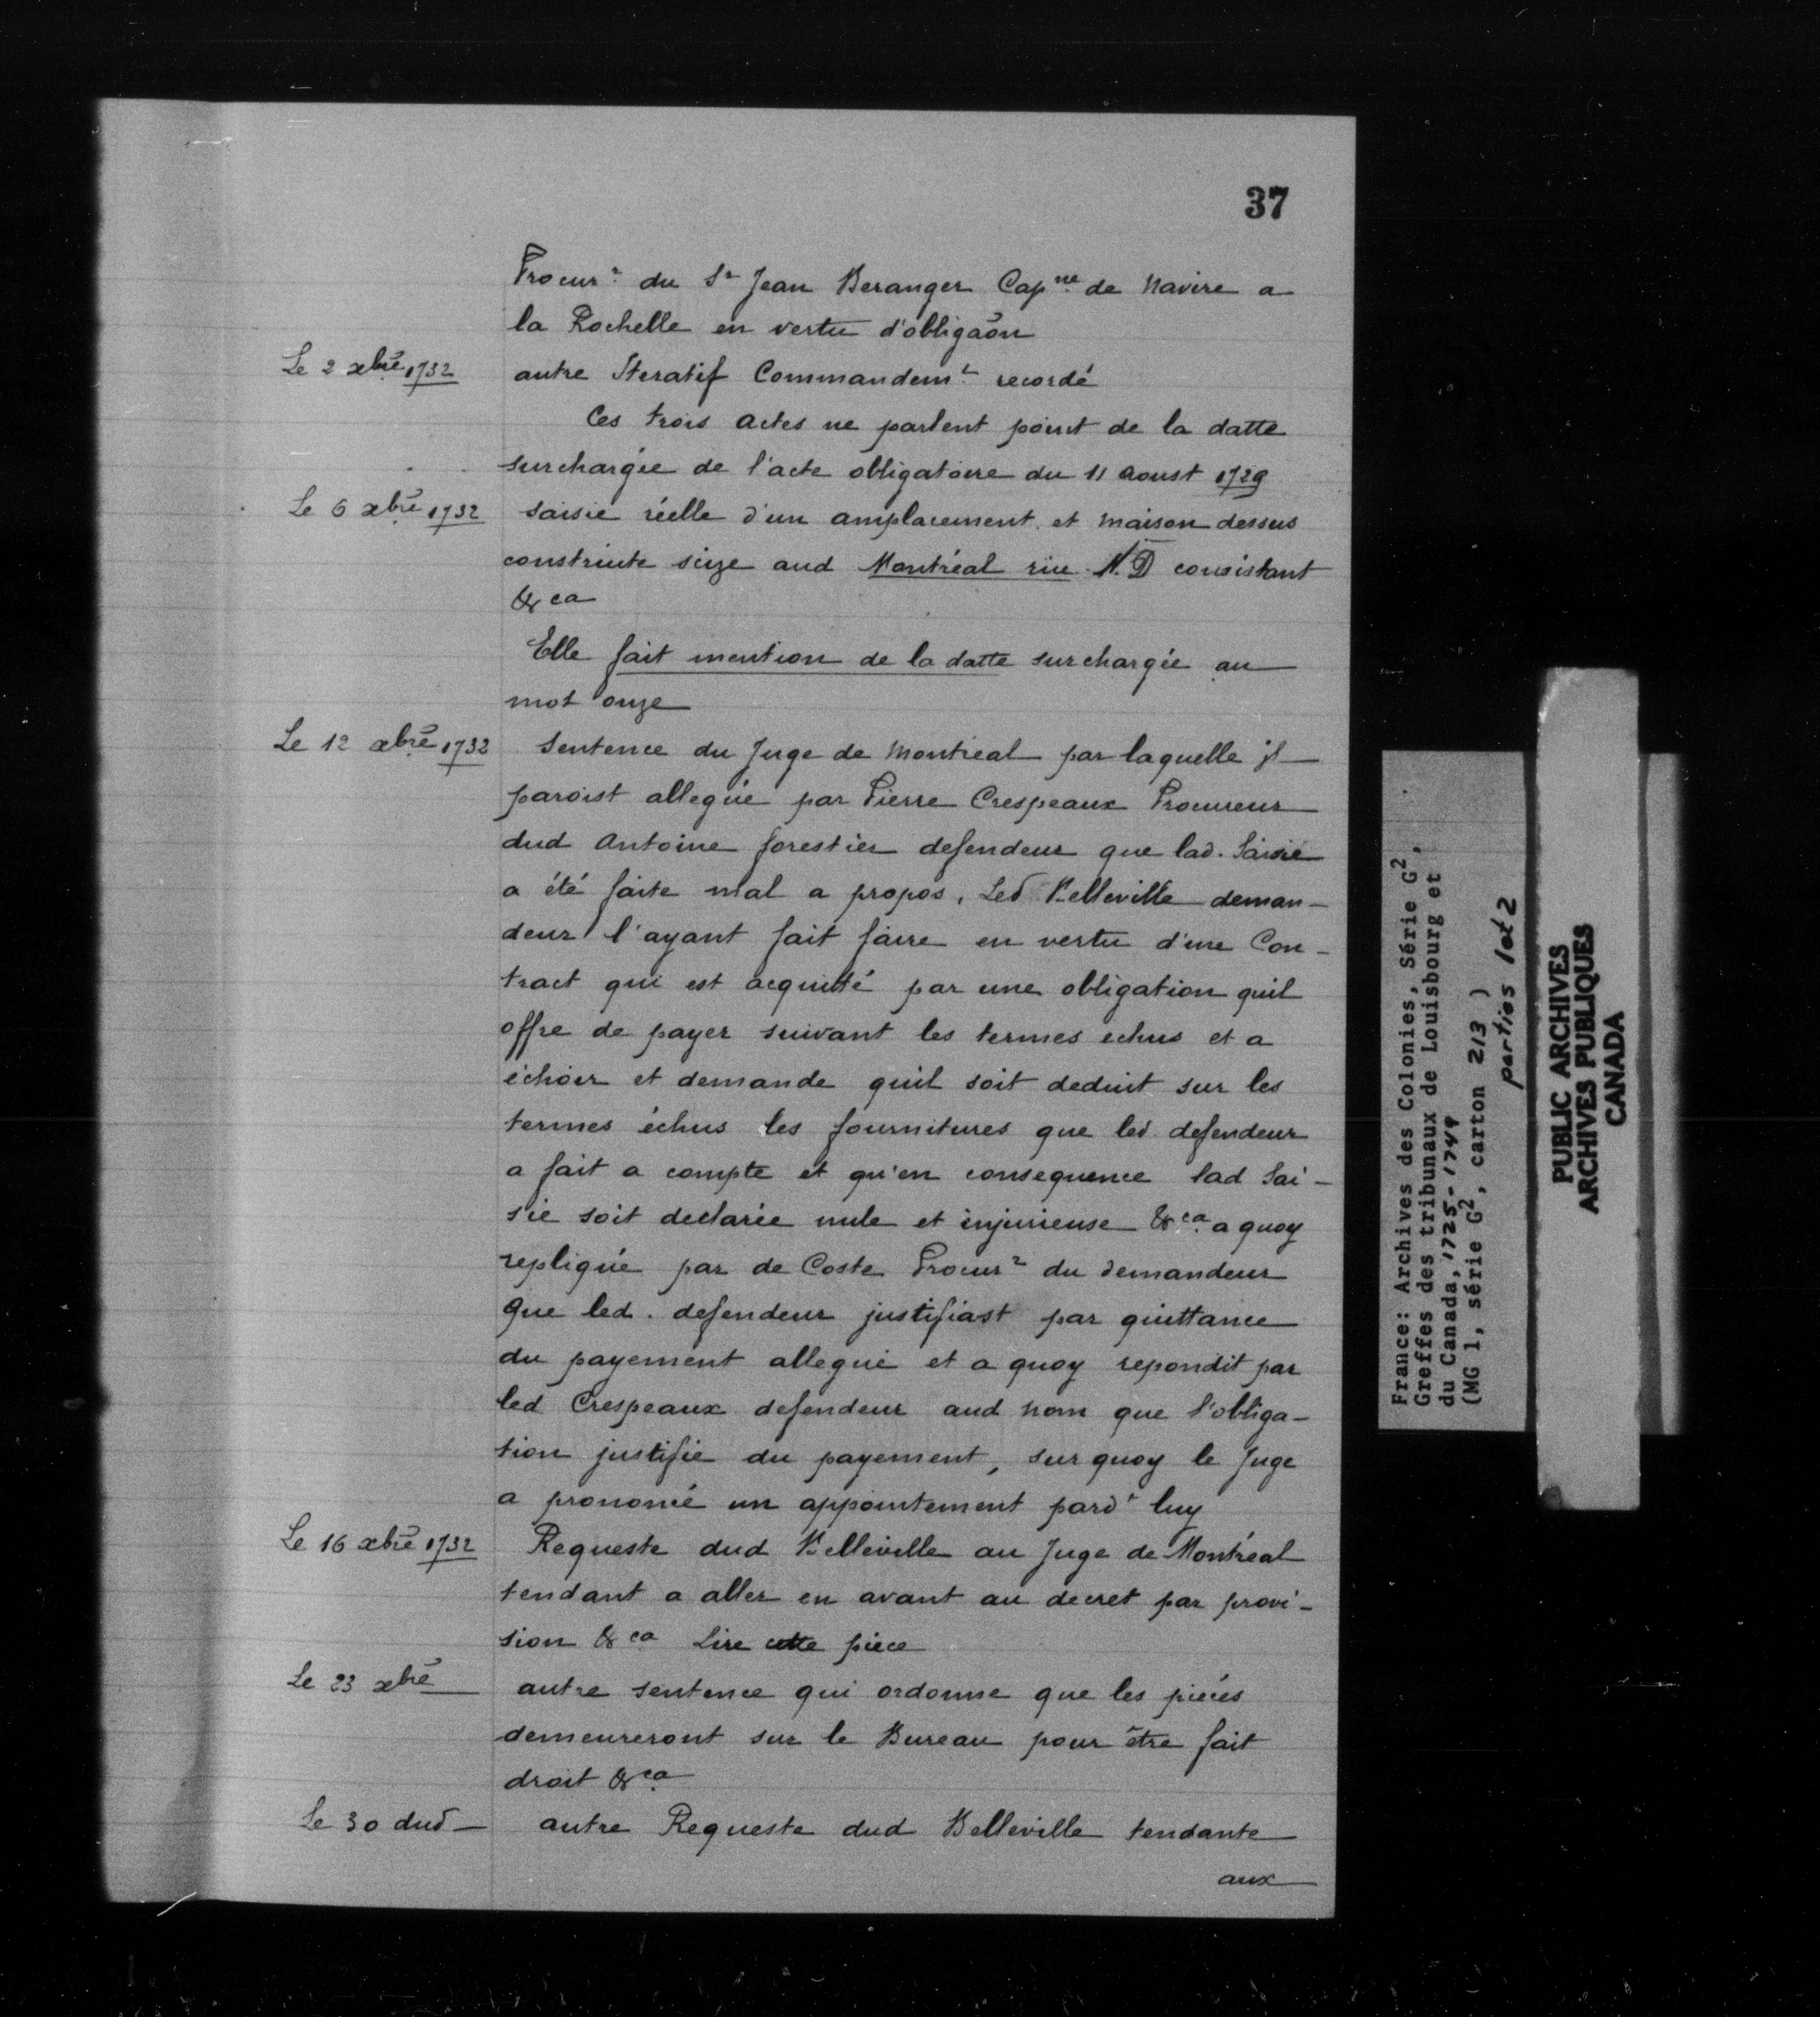 37
Procur.r du Sr Jean Beranger Cap.ne de Navire a
la Rochelle en vertu d'obligãon
Le 2 xbre 1732 autre Iteratif Commandem.t recordé
Ces trois actes ne parlent point de la datte
surchargée de l'acte obligatoire du 11 aoust 1729
Le 6 xbre 1732 saisie réelle d'un amplacement et maison dessus
construite scize aud Montréal rüe N.D consistant
&ca
Elle fait mention de la datte surchargée au
mot onze
Le 12 xbre 1732 Sentence du Juge de Montreal par laquelle il
paroist allegué par Pierre Crespeaux Procureur
dud Antoine forestier defendeur que lad. Saisie
a été faite mal a propos, Led Belleville deman-
deur l'ayant fait faire en vertu d'une Con-
tract qui est acquitté par une obligation quil
offre de payer suivant les termes echus et a
échoir et demande quil soit deduit sur les
termes échus les fournitures que led. defendeur
a fait a compte et qu'en consequence lad Sai-
sie soit declarée nule et injurieuse &ca a quoy
repliqué par de Coste Procur.r du demandeur
que led. defendeur justifiast par quittance
du payement allegué et a quoy repondit par
led Crespeaux defendeur aud nom que l'obliga-
tion justifie du payement, sur quoy le Juge
a prononcé un appointement pard.t luy
Le 16 xbre 1732 Requeste dud Belleville au Juge de Montréal
tendant a aller en avant au decret par provi-
sion &ca Lire cette piece
Le 23 xbre autre sentence qui ordonne que les pieces
demeureront sur le Bureau pour être fait
droit &ca
Le 30 dud autre Requeste dud Belleville tendante
aux
France: Archives des Colonies, Série G2,
Greffes des tribunaux de Louisbourg et
du Canada, 1725-1749
(MG 1, série G2, carton 213 )
parties 1et 2
PUBLIC ARCHIVES
ARCHIVES PUBLIQUES
CANADA